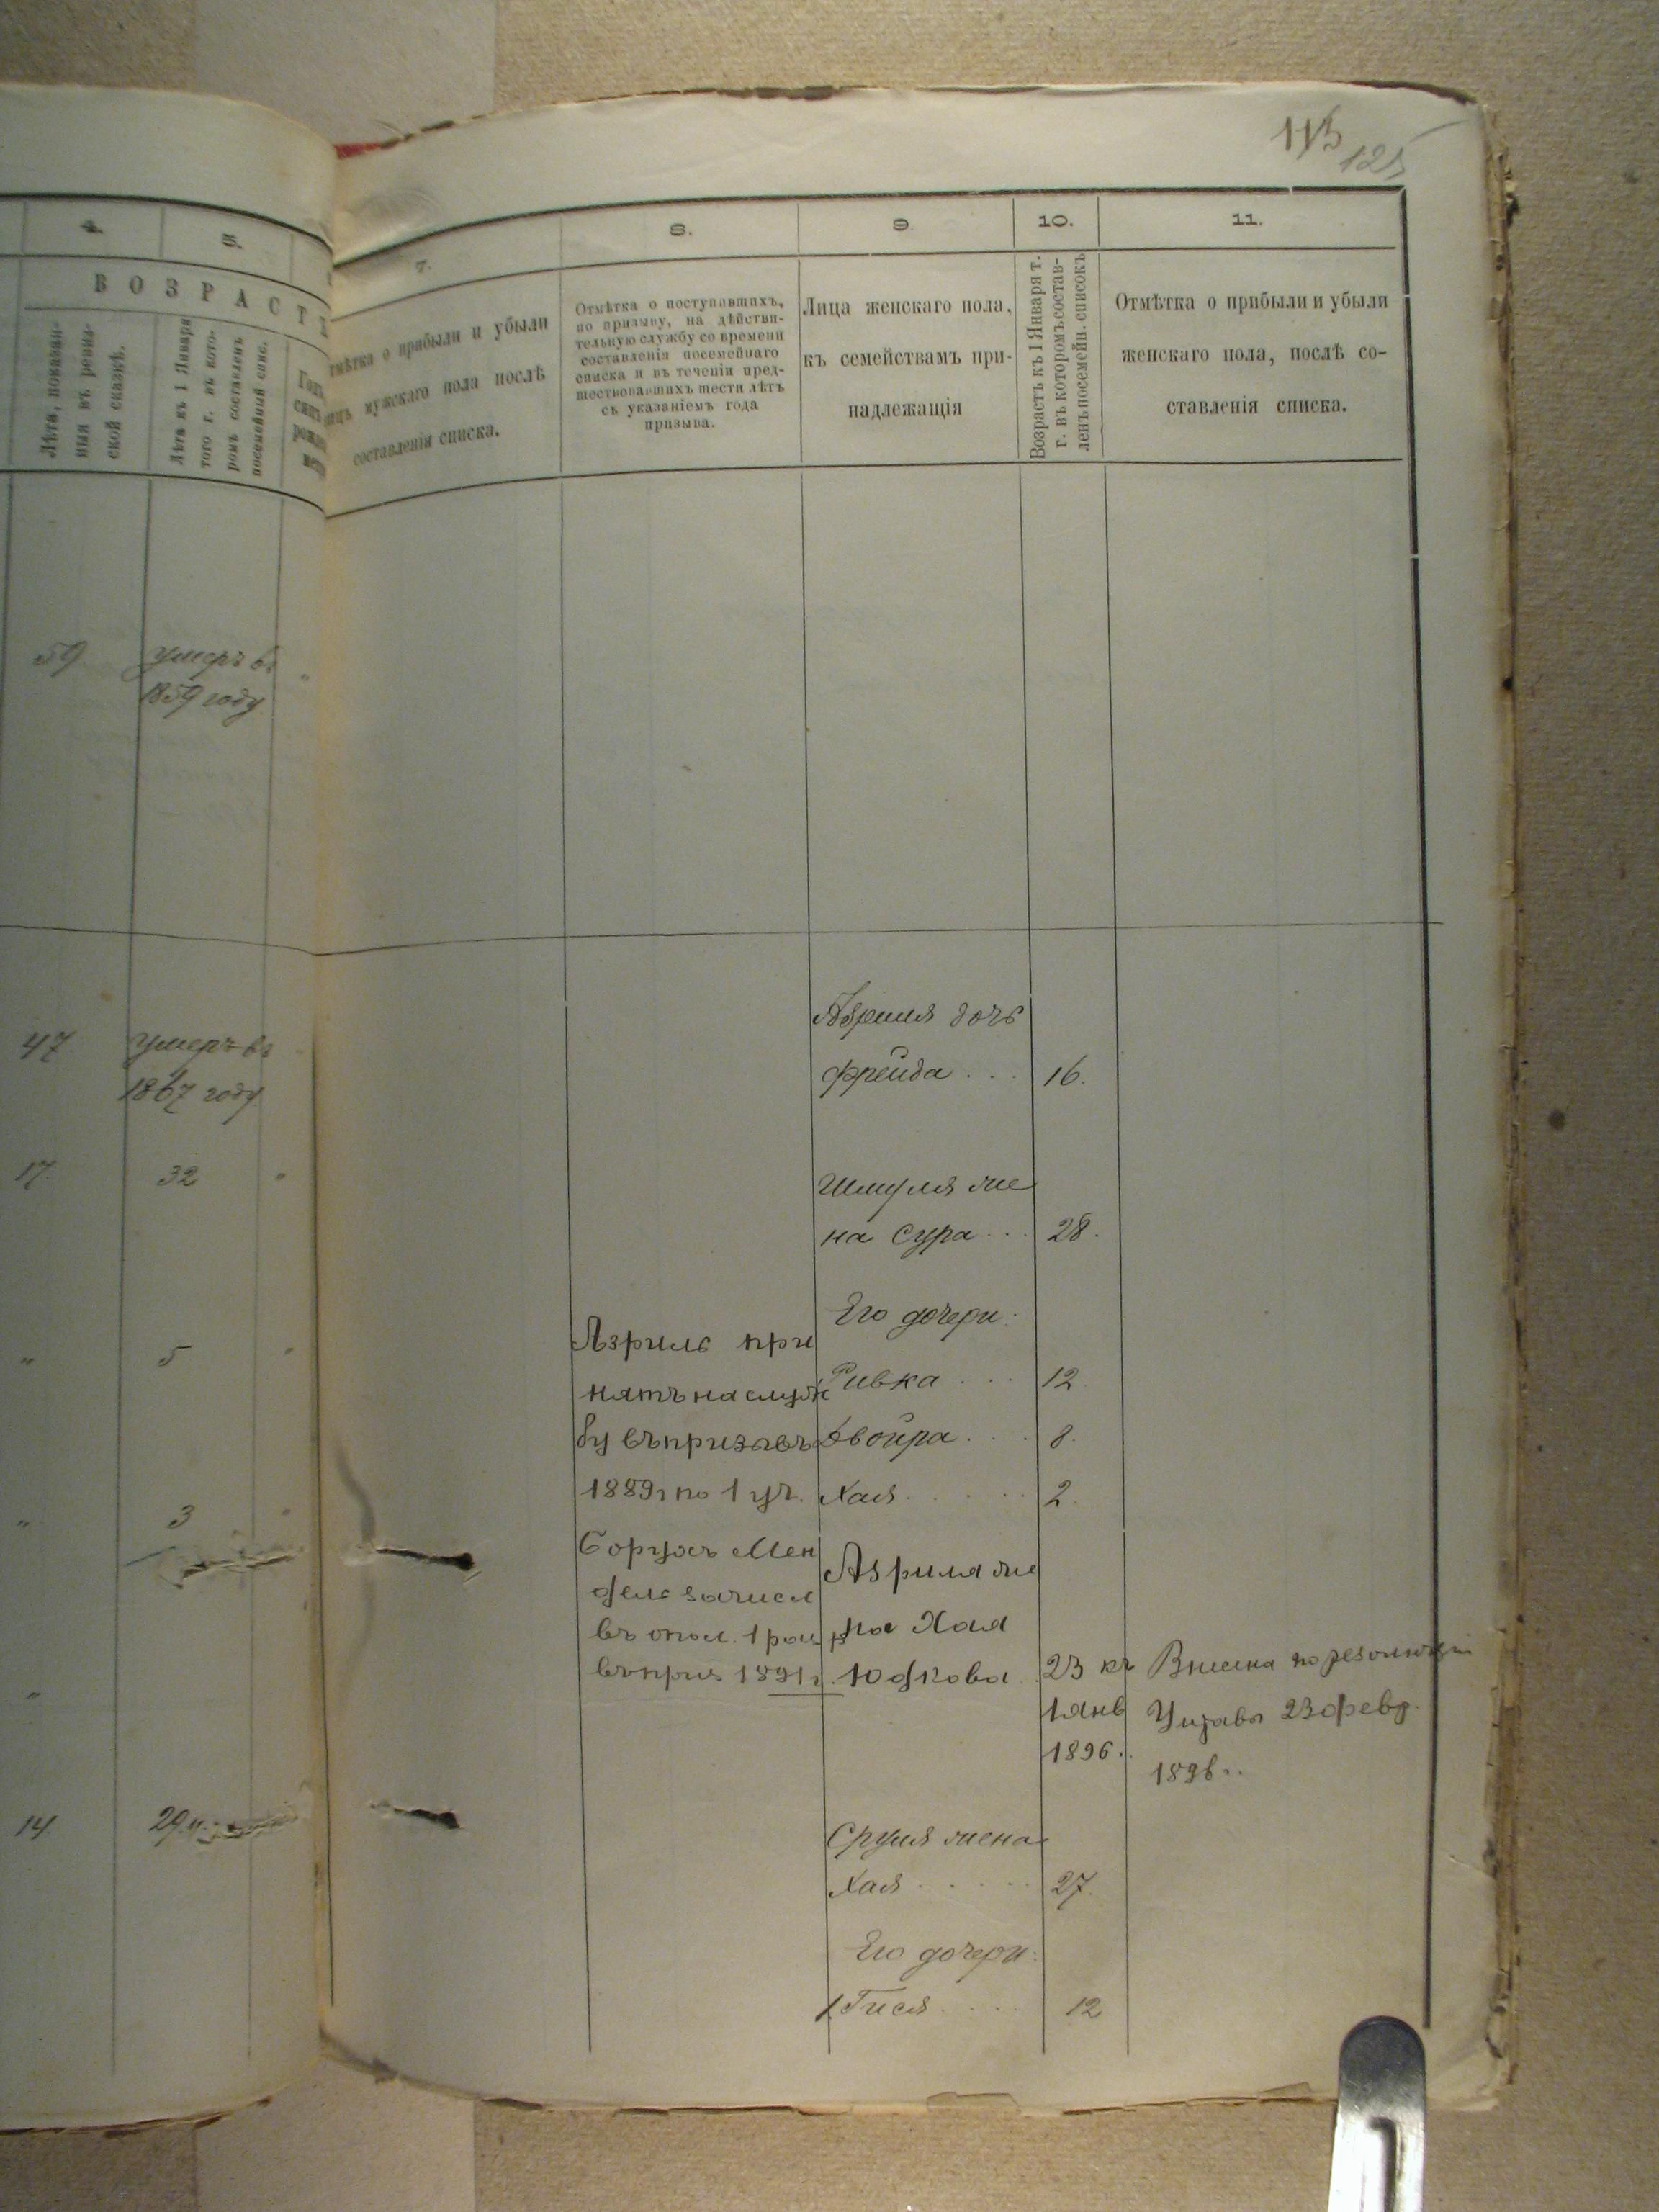 113
125
4.
5.
ВОЗРАСТ
Лѣта, показан-
ныя въ ревиз-
ской сказкѣ.
Лѣта къ 1 Января
того г. въ кото-
ромъ составленъ
посемейный спис.
59
умеръ въ
1859 году
47
умеръ въ
1867 году
17.
32
"
5
"
3
"
14.
29
7.
8.
9
10.
11.
мѣтка о прибыли и убыли
лицъ мужскаго пола послѣ
составленія списка.
Отмѣтка о поступавшихъ,
по призыву, на дѣйстви-
тельную службу со времени
составленія посемейнаго
списка и въ теченіи пред-
шествовавшихъ шести лѣтъ
съ указаніемъ года
призыва.
Лица женскаго пола,
къ семействамъ при-
надлежащія
Возрастъ къ 1 Января т.
г. въ которомъ состав-
ленъ посемейн. списокъ
Отмѣтка о прибыли и убыли
женскаго пола, послѣ со-
ставленія списка.
дочь
Фрейда . . . 16.
Шмуля же
на Сура . . . 28.
Его дочери:
Ривка . . . 12.
Двойра . . . 8.
Хая . . . . . 2.
Азриль при
нятъ на служ
бу въ призывъ
1889 г по 1 уч.
Борухъ Мен
дель зачисл
въ опол. 1 раз
въ приз 1891 г.
Азриля же
на Хая
Юдкова 23 къ
1 янв
1896.
Внесена по резолюціи
Управы 23 февр.
1896 г.
Сруля жена
Хая . . . . . 27.
Его дочери:
Гися . . . . 12